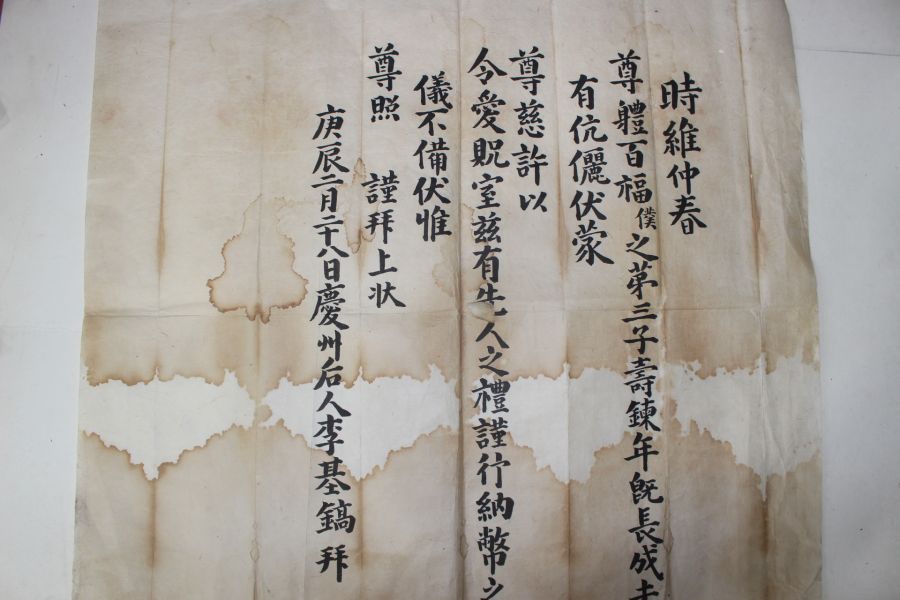 時維仲春
尊體百福僕之苐三子壽鍊年旣長成未
有伉儷伏蒙
尊慈許以
令愛貺室玆有先人之禮謹行納幣之
儀不備伏惟
尊照　謹拜上狀
庚辰二月二十八日慶州后人李基鎬 拜